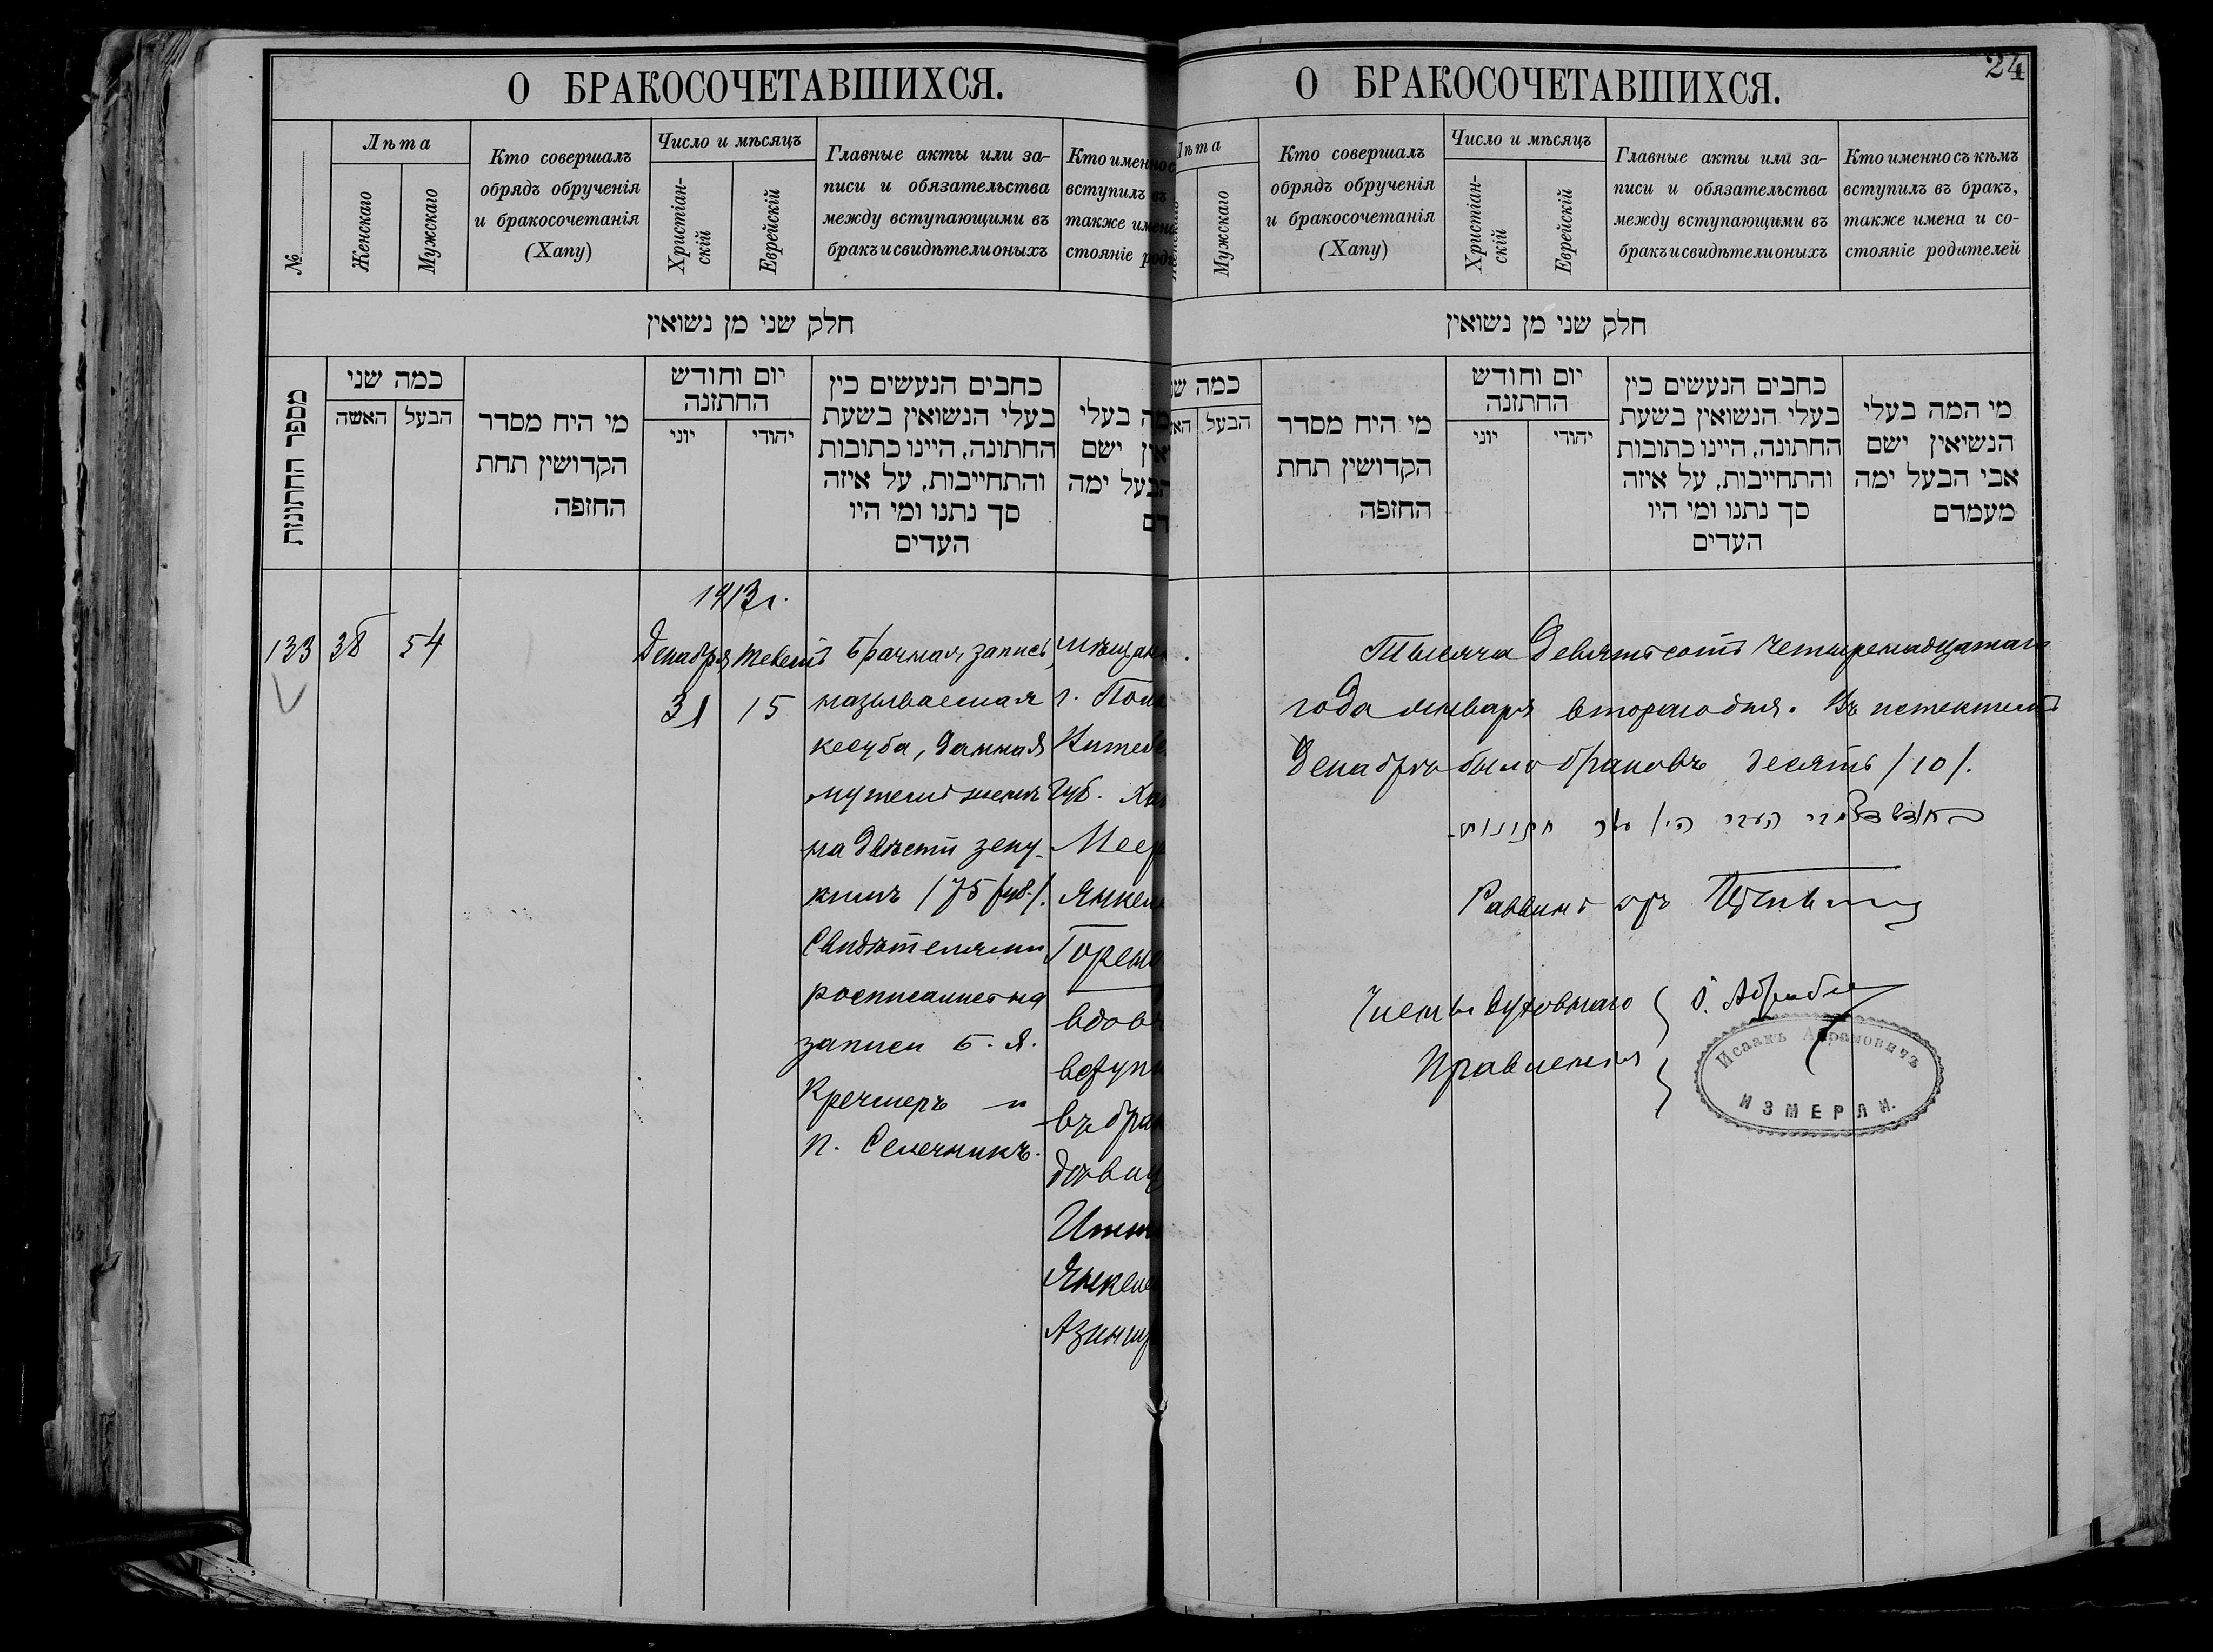 О БРАКОСОЧЕТАВШИХСЯ.
№
Лѣта
Женскаго
Мужскаго
Кто совершалъ
обрядъ обрученія
и бракосочетанія
(Хапу)
Число и мѣсяцъ
Христіан-
скій
Еврейскій
Главные акты или за-
писи и обязательства
между вступающими въ
бракъ и свидѣтели оныхъ
Кто именно с
вступилъ въ
также имена
стояніе род
חלק שני מן נשואין
מספר החתונות
כמה שני
האשה
הבעל
מי היח מסדר
הקדושין תחת
החופה
יום וחודש
החתונה
יוני
יהודי
כחבים הנעשים בין
בעלי הנשואין בשעת
החתונה, היינו כתובות
והתחייבות, על איזה
סך נתנו ומי היו
העדים
מה בעלי
אין ישם
הבעל ימה
דם
1913 г.
133
38
54
Декабря
31
Теветъ
15
Брачная запись
называемая
кесуба, данная
мужемъ женѣ
на двѣсти зеку-
кимъ /75 руб./.
Свидѣтелями
росписались на
записи Б. Я.
Кречмеръ и
П. Селечникъ.
мѣщан
г. Поло
Витебс
Губ.
Меер
Янкеле
Горе
вдов
вступи
въ бра
дѣвиц
Янкеле
24
О БРАКОСОЧЕТАВШИХСЯ.
Лѣта
Мужскаго
Кто совершалъ
обрядъ обрученія
и бракосочетанія
(Хапу)
Число и мѣсяцъ
Христіан-
скій
Еврейскій
Главные акты или за-
писи и обязательства
между вступающими въ
бракъ и свидѣтели оныхъ
Кто именно съ кѣмъ
вступилъ въ бракъ,
также имена и со-
стояніе родителей
חלק שני מן נשואין
כמה ש
הבעל
מי היח מסדר
הקדושין תחת
החופה
יום וחודש
החתונה
יוני
יהודי
כחבים הנעשים בין
בעלי הנשואין בשעת
החתונה, היינו כתובות
והתחייבות, על איזה
סך נתנו ומי היו
העדים
מי המה בעלי
הנשיאין ישם
אבי הבעל ימה
מעמדם
Тысяча Девятьсотъ четырнадцатаго
года января второго дня. Въ истекшемъ
Декабрѣ было браковъ десять /10/.
חתונות
Раввинъ
Члены Духовнаго
Правленія
Исаакъ Абрамовичъ
ИЗМЕРЛИ.